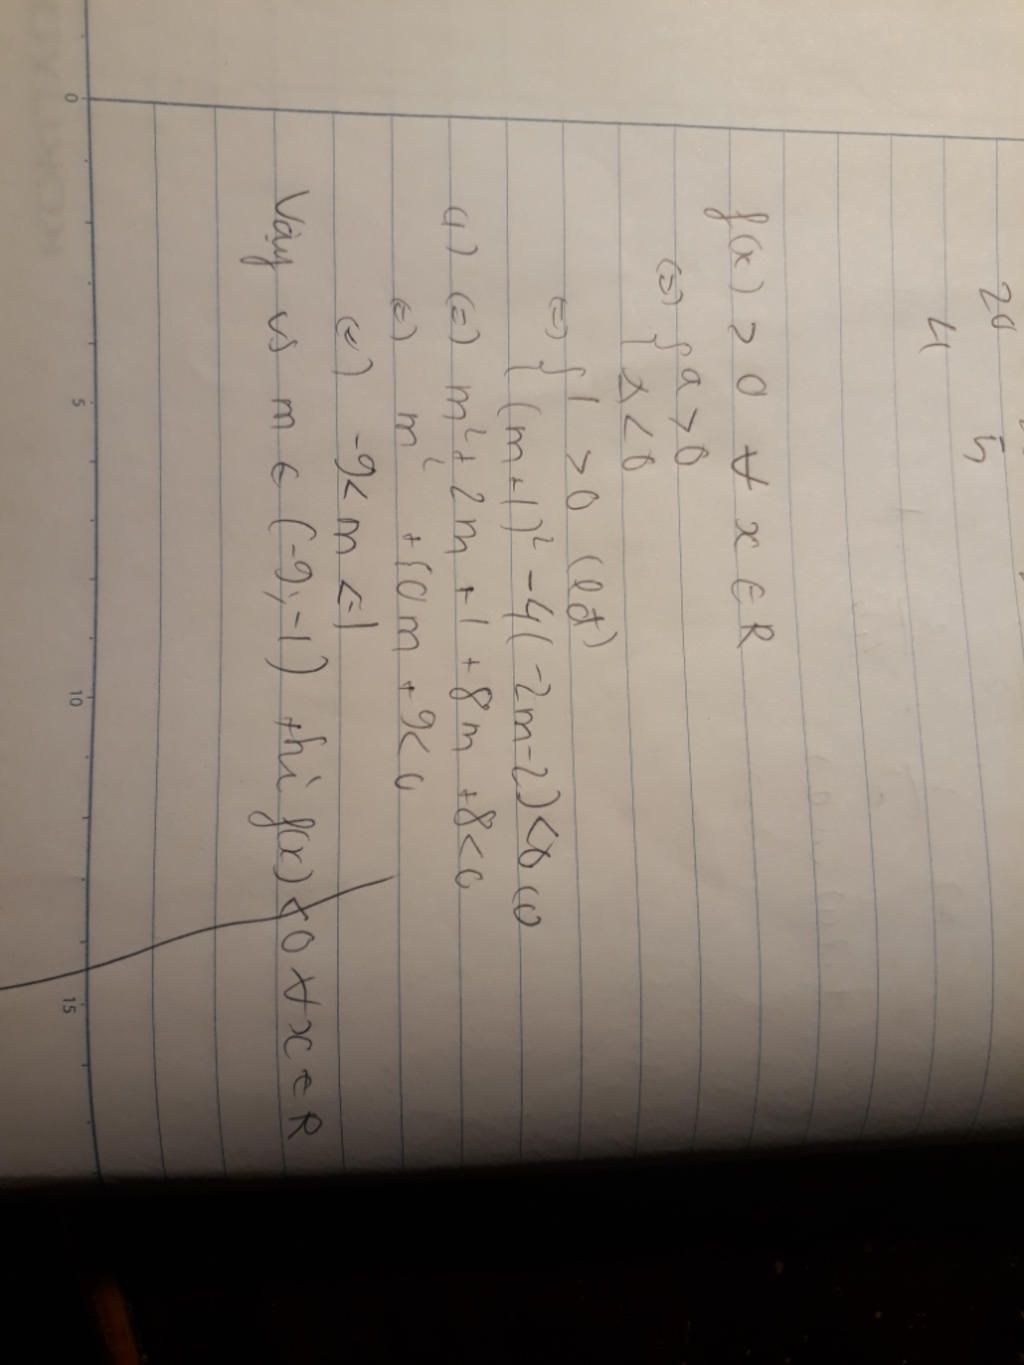 20
4 5
f(x) > 0 ∀ x ∈ R
(=) { a > 0
Δ < 0
(=) { 1 > 0 (lđ)
(m + 1)² - 4(-2m - 2) < 0 (1)
(1) (=) m² + 2m + 1 + 8m + 8 < 0
(=) m² + 10m + 9 < 0
(=) -9 < m < -1
Vậy vs m ∈ (-9; -1) thì f(x) < 0 ∀ x ∈ R
0 5 10 15